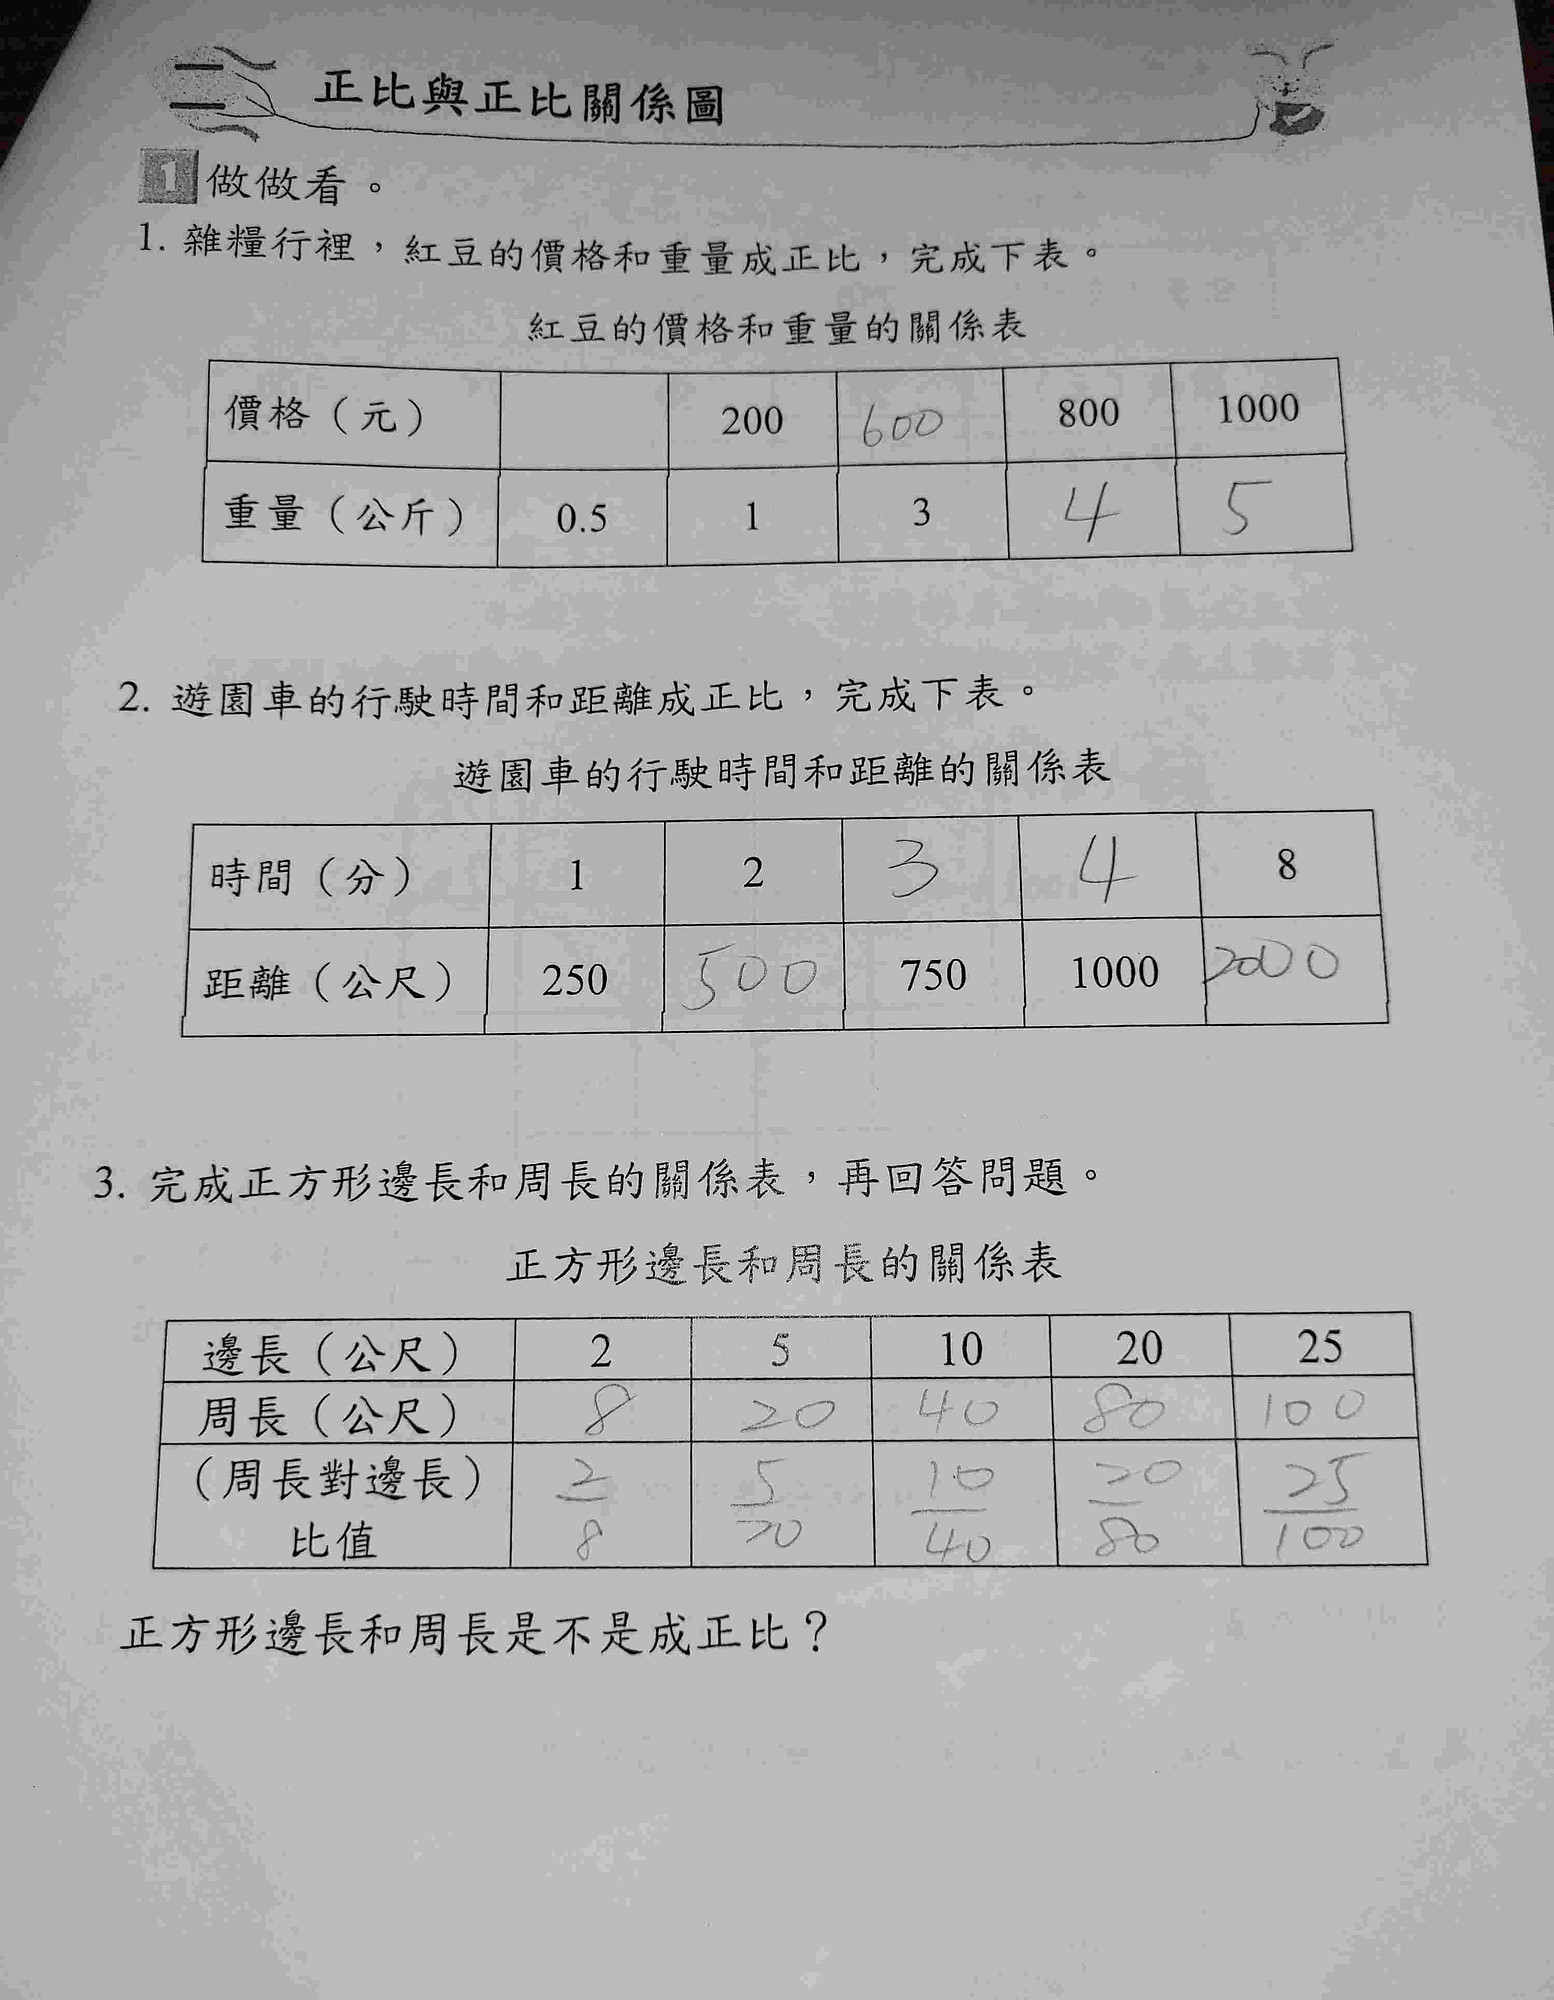 二 正比與正比關係圖
1 做做看。
1. 雜糧行裡，紅豆的價格和重量成正比，完成下表。
紅豆的價格和重量的關係表
價格（元） 200 600 800 1000
重量（公斤） 0.5 1 3 4 5
2. 遊園車的行駛時間和距離成正比，完成下表。
遊園車的行駛時間和距離的關係表
時間（分） 1 2 3 4 8
距離（公尺） 250 500 750 1000 2000
3. 完成正方形邊長和周長的關係表，再回答問題。
正方形邊長和周長的關係表
邊長（公尺） 2 5 10 20 25
周長（公尺） 8 20 40 80 100
（周長對邊長）比值 2/8 5/20 10/40 20/80 25/100
正方形邊長和周長是不是成正比？